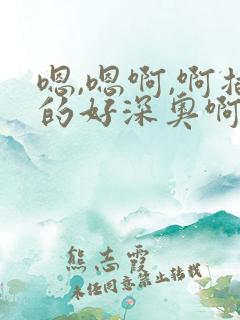 嗯,嗯啊,啊
的好深奥啊
熊志霞
未经同意禁止转载